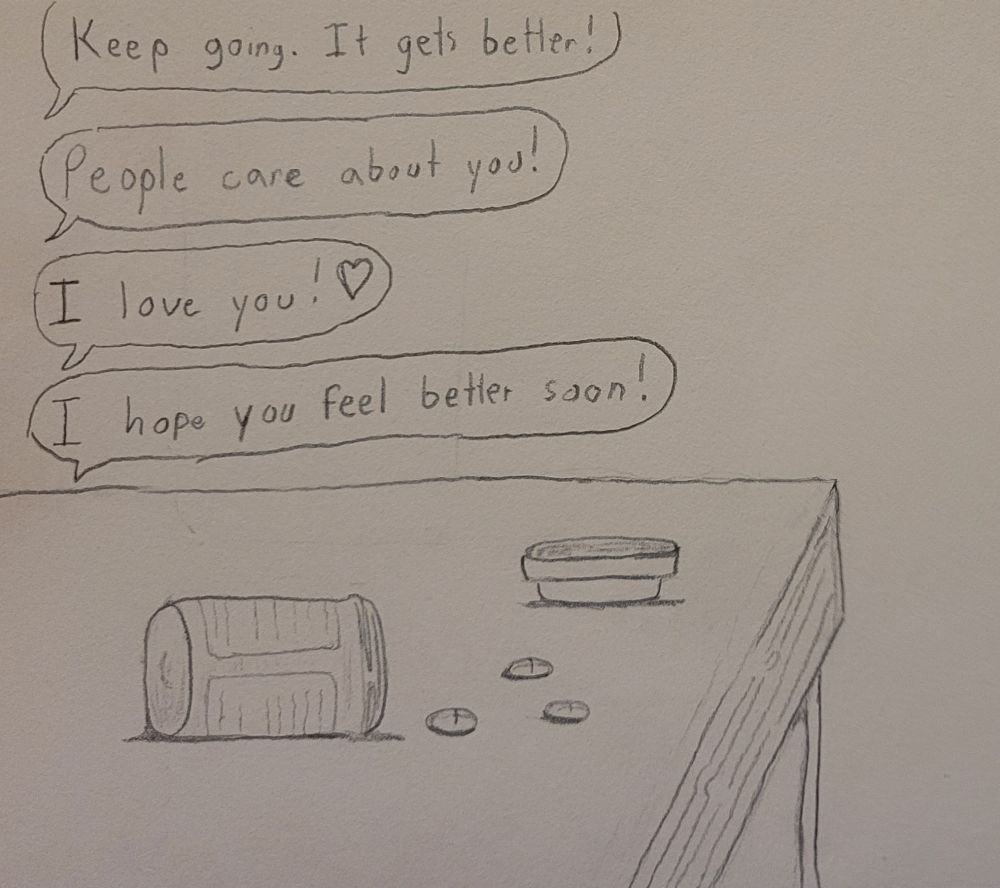 Keep going. It gets better!
People care about you!
I love you! ♡
I hope you feel better soon!